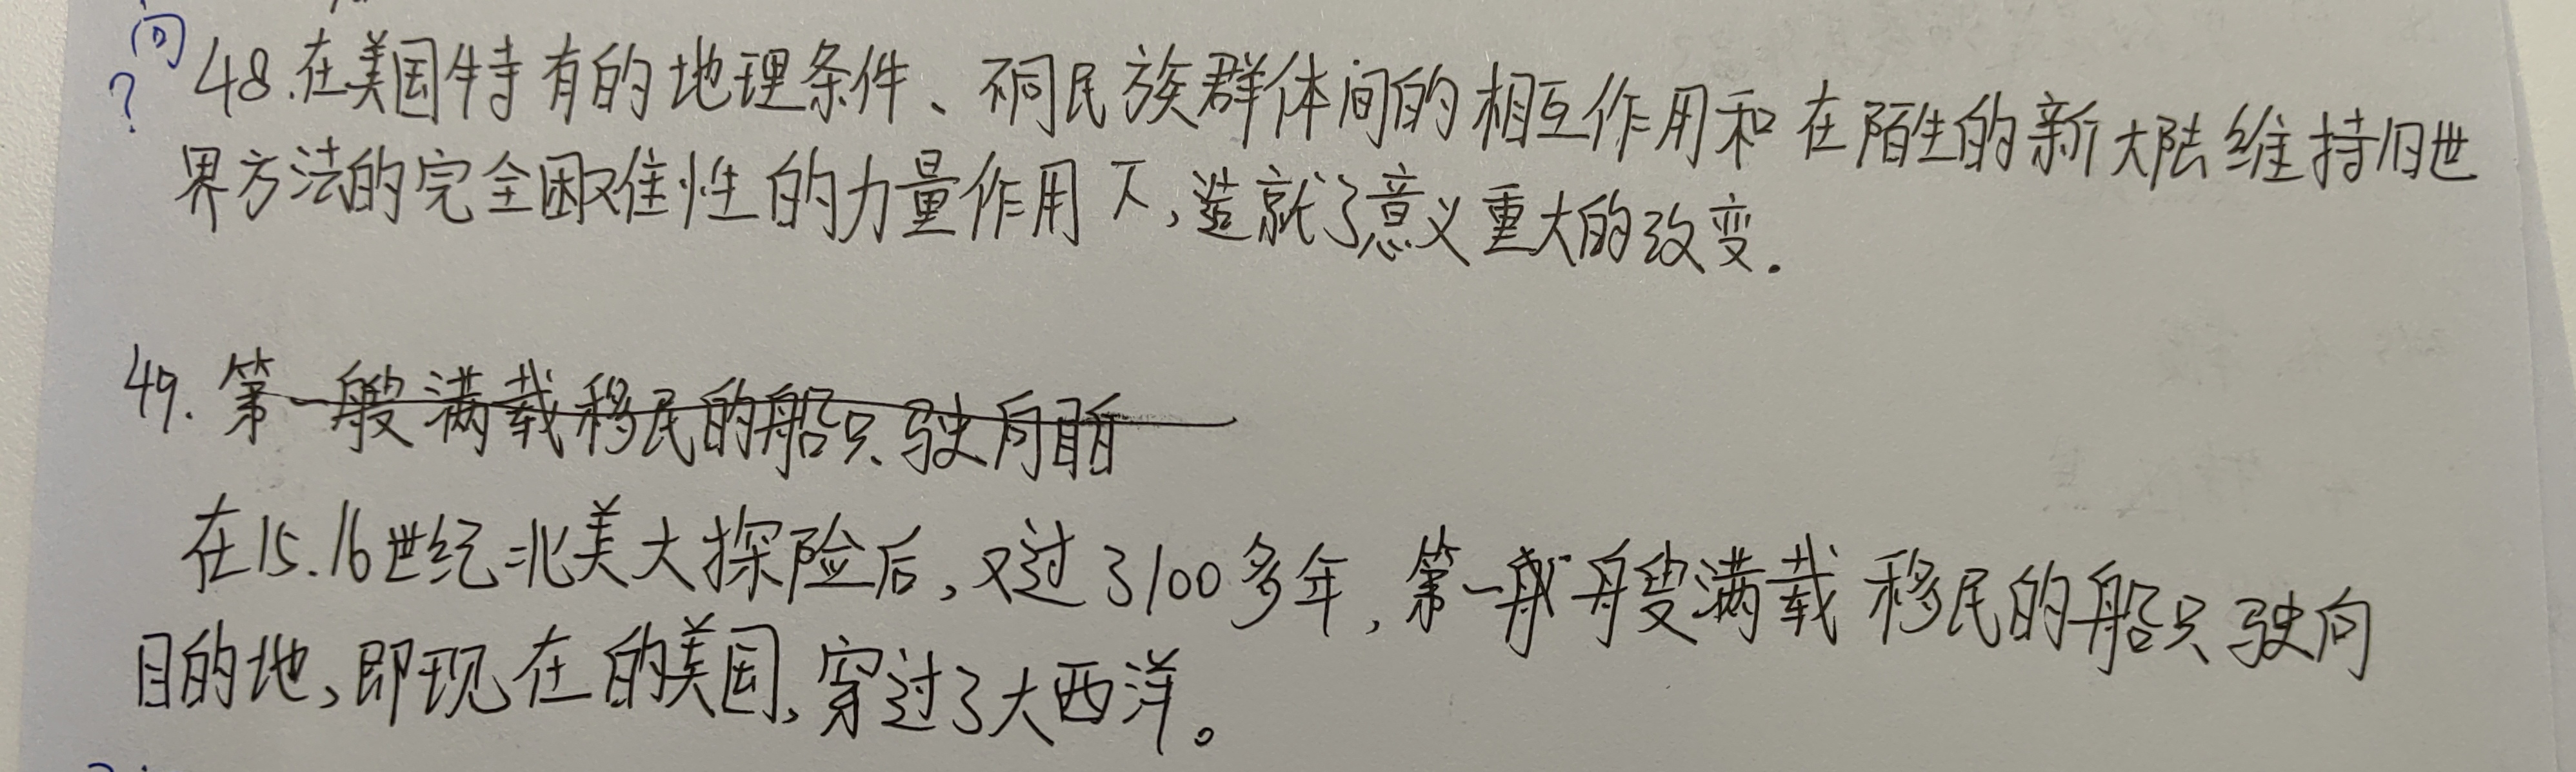 问
? 48.在美国特有的地理条件、不同民族群体间的相互作用和在陌生的新大陆维持旧世
界方法的完全困难性的力量作用下,造就了意义重大的改变.
49. 第一艘满载移民的船只驶向目
在15.16世纪北美大探险后,又过了100多年,第一艘满载移民的船只驶向
目的地,即现在的美国,穿过了大西洋。